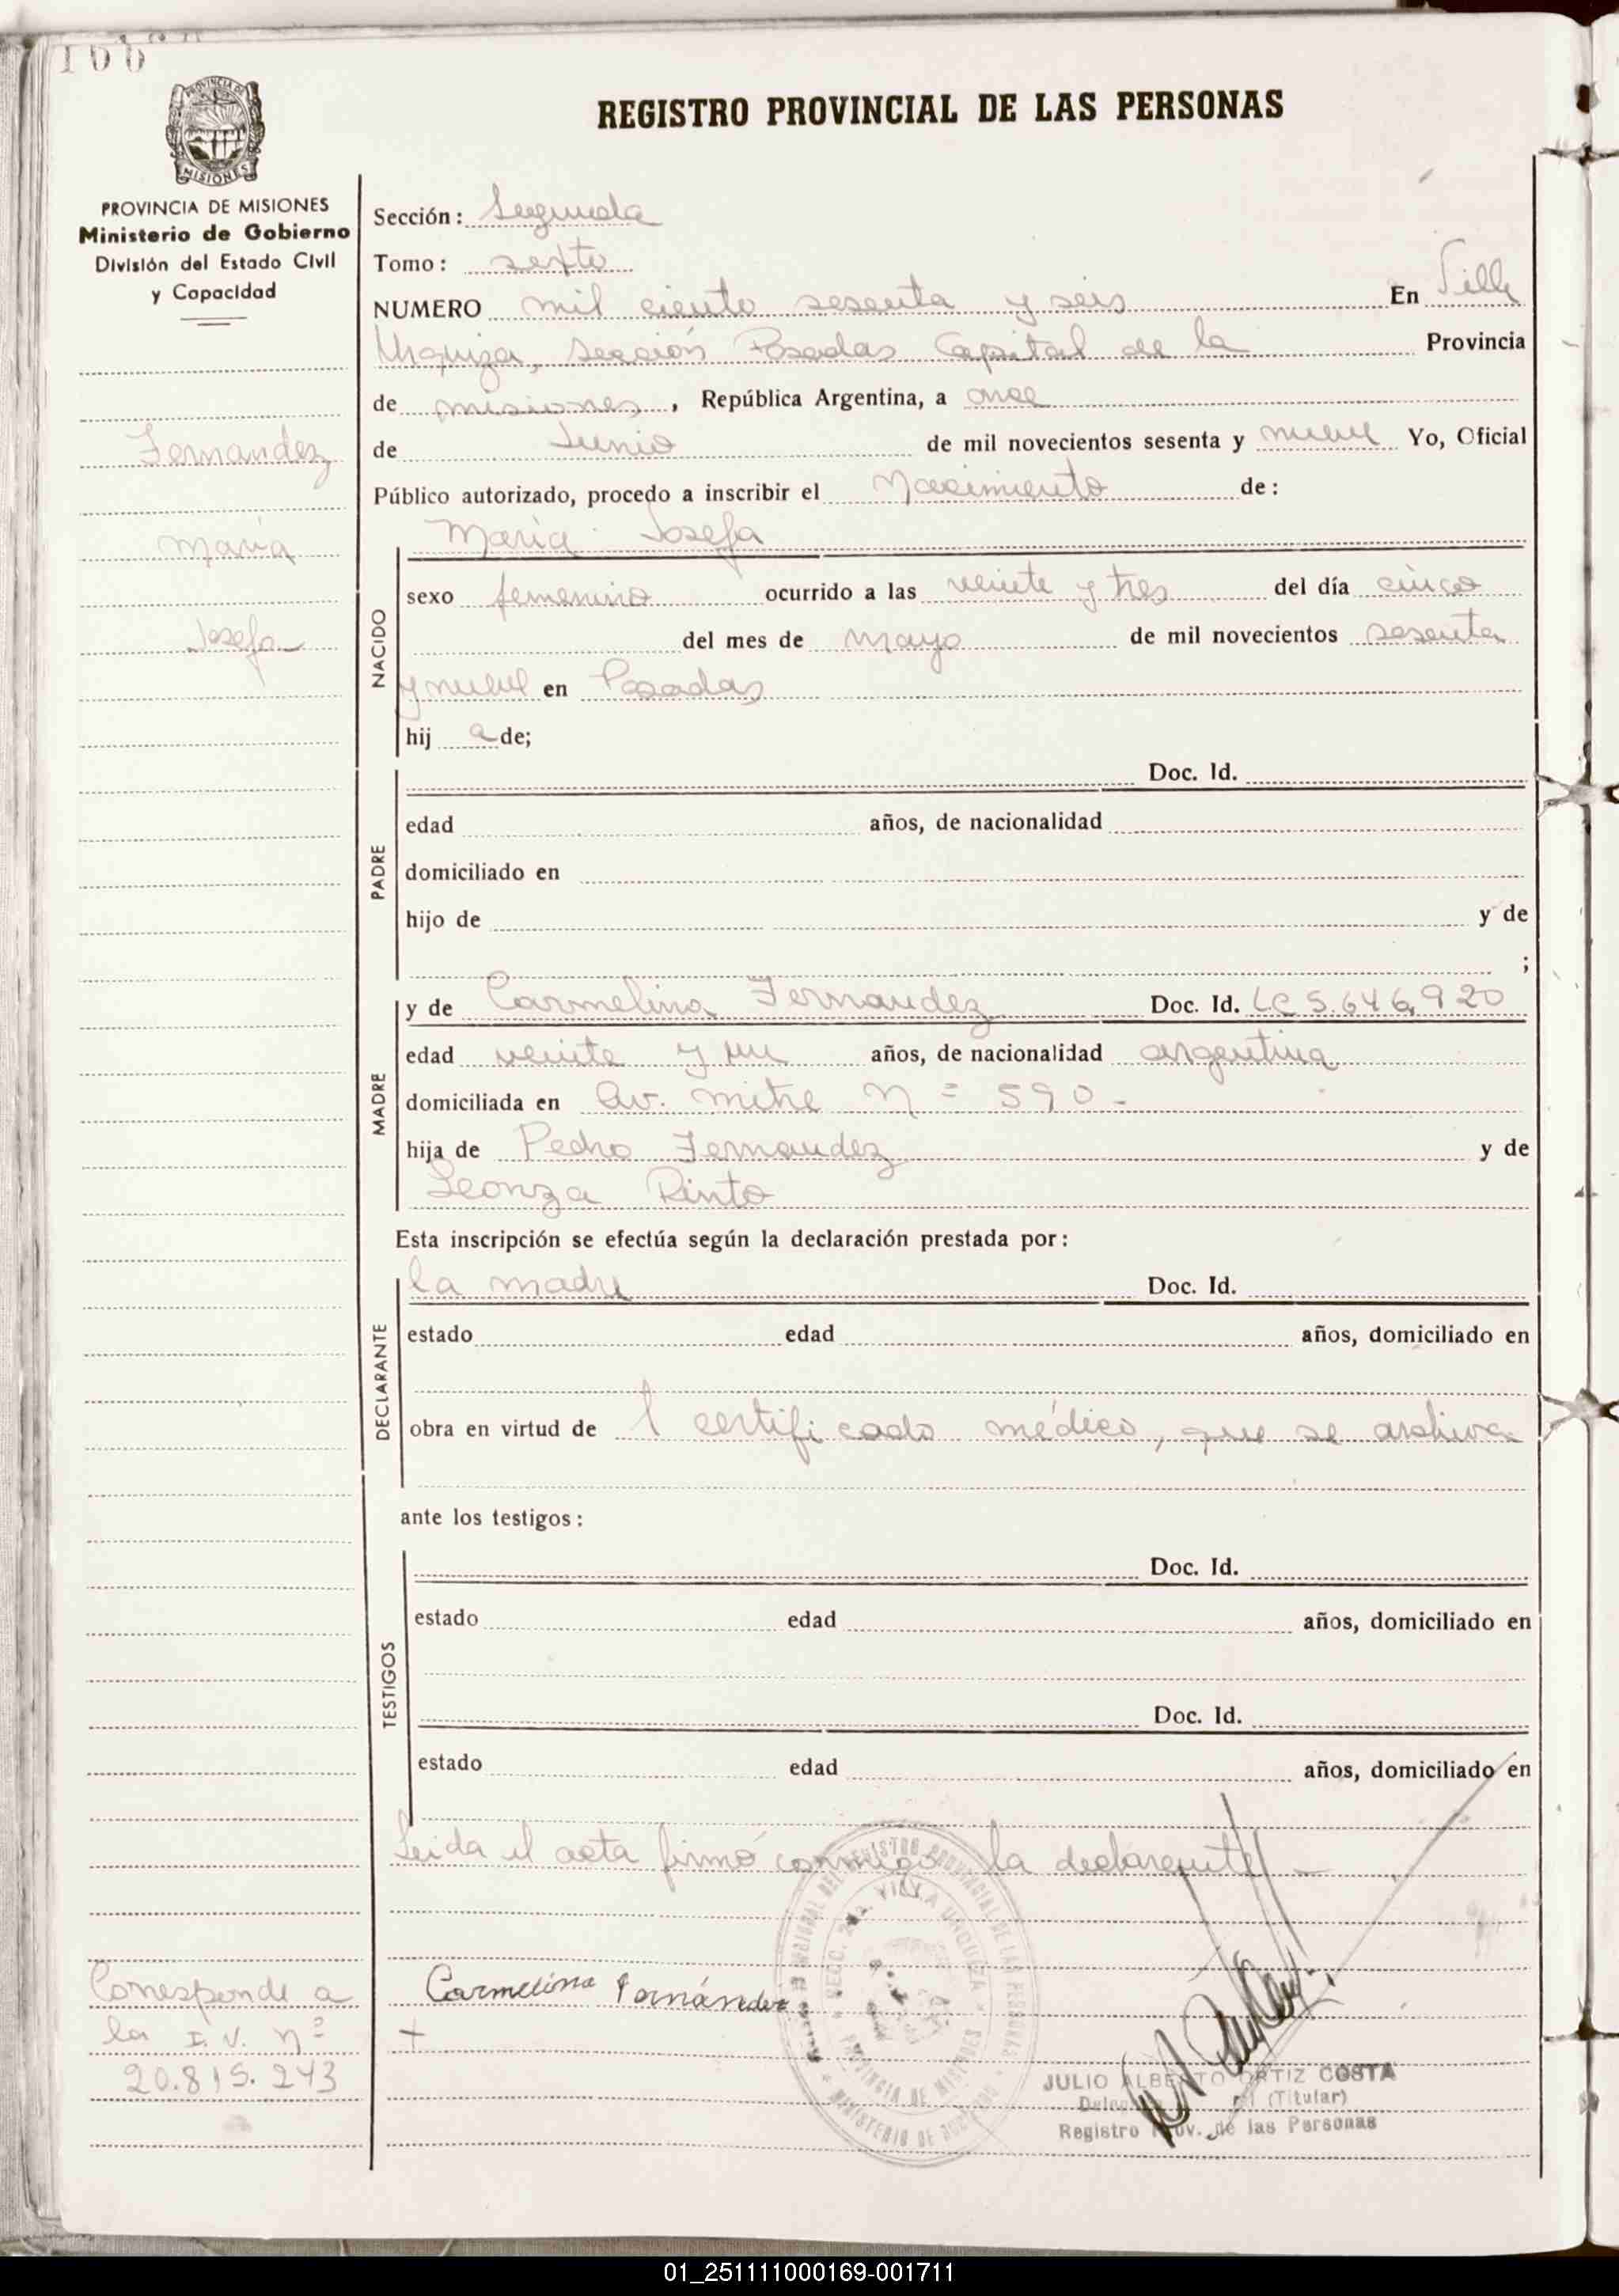 166
MISIONES
REGISTRO PROVINCIAL DE LAS PERSONAS
PROVINCIA DE MISIONES
Ministerio de Gobierno
División del Estado Civil
y Capacidad
Fernandez
Maria
Josefa
Sección: Segunda
Tomo: sexto
NUMERO mil ciento sesenta y seis En Villa
Urquiza, Sección Posadas Capital de la Provincia
de misiones, República Argentina, a once
de Junio de mil novecientos sesenta y nueve Yo, Oficial
Público autorizado, procedo a inscribir el Nacimiento de:
NACIDO
Maria Josefa
sexo femenino ocurrido a las veinte y tres del día cinco
del mes de mayo de mil novecientos sesenta
y nueve en Posadas
hij a de;
PADRE
Doc. Id.
edad años, de nacionalidad
domiciliado en
hijo de y de
;
MADRE
y de Carmelina Fernandez Doc. Id. LC 5.646,920
edad veinte y un años, de nacionalidad argentina
domiciliada en Av. mitre N= 590-
hija de Pedro Fernandez y de
Leonza Pinto
Esta inscripción se efectúa según la declaración prestada por:
DECLARANTE
la madre Doc. Id.
estado edad años, domiciliado en
obra en virtud de 1 certificado médico, que se archiva
ante los testigos:
TESTIGOS
Doc. Id.
estado edad años, domiciliado en
Doc. Id.
estado edad años, domiciliado en
Leida el acta firmó conmigo la declarante -
Carmelina Fernández
+
Corresponde a
la I.V. nº
20.815.243
JULIO ALBERTO ORTIZ COSTA
(Titular)
Registro Prov. de las Personas
01_251111000169-001711